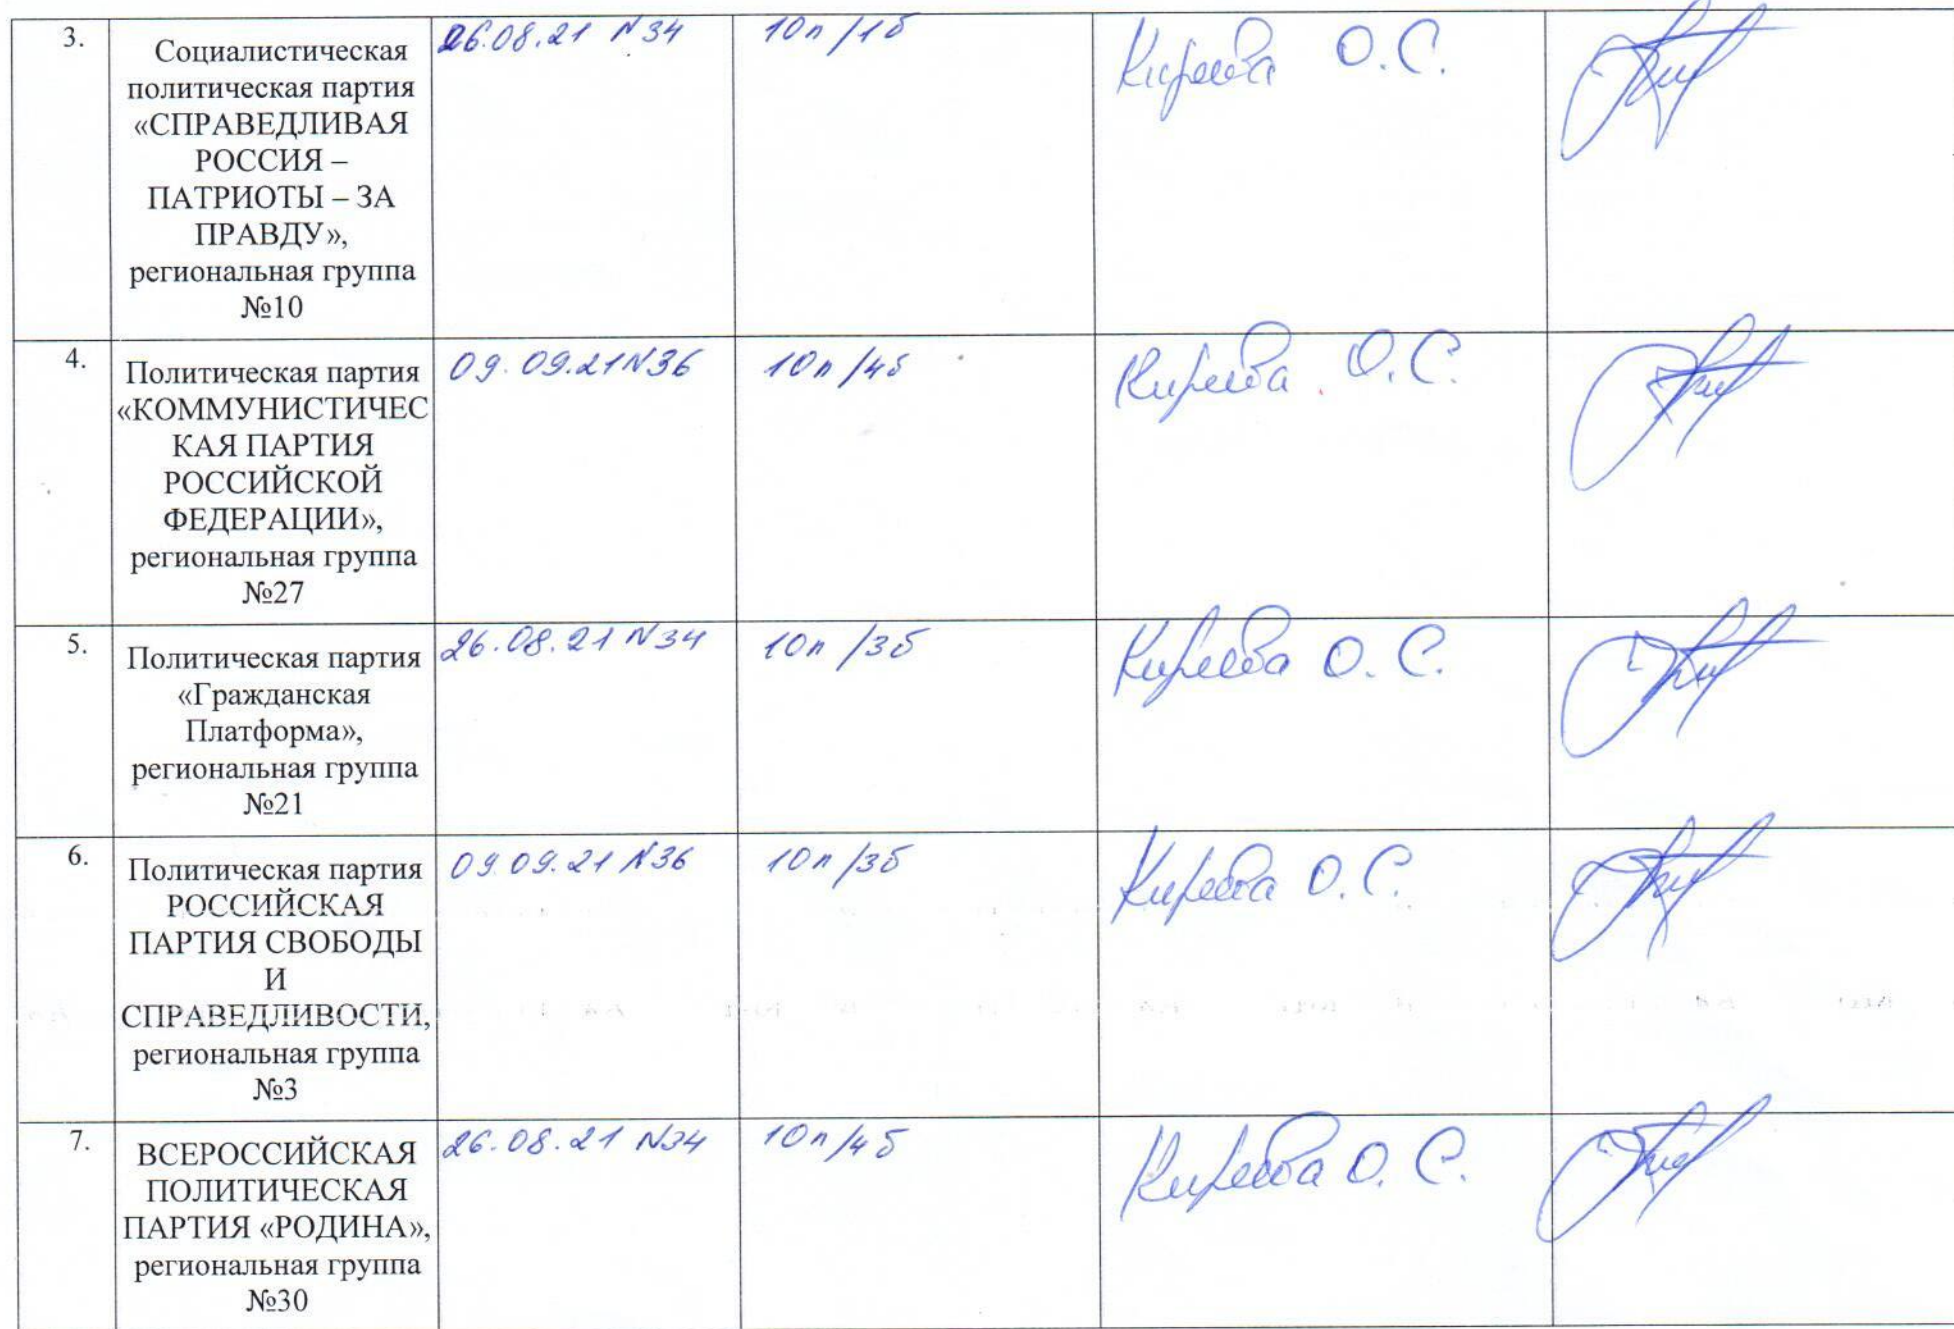 3.
Социалистическая
политическая партия
«СПРАВЕДЛИВАЯ
РОССИЯ –
ПАТРИОТЫ – ЗА
ПРАВДУ»,
региональная группа
№10
26.08.21 N34
10п /1б
Киреева О.С.
4.
Политическая партия
«КОММУНИСТИЧЕС
КАЯ ПАРТИЯ
РОССИЙСКОЙ
ФЕДЕРАЦИИ»,
региональная группа
№27
09.09.21 N36
10п /4б
Киреева О.С.
5.
Политическая партия
«Гражданская
Платформа»,
региональная группа
№21
26.08.21 N34
10п /3б
Киреева О.С.
6.
Политическая партия
РОССИЙСКАЯ
ПАРТИЯ СВОБОДЫ
И
СПРАВЕДЛИВОСТИ,
региональная группа
№3
09.09.21 N36
10п /3б
Киреева О.С.
7.
ВСЕРОССИЙСКАЯ
ПОЛИТИЧЕСКАЯ
ПАРТИЯ «РОДИНА»,
региональная группа
№30
26.08.21 N34
10п /4б
Киреева О.С.